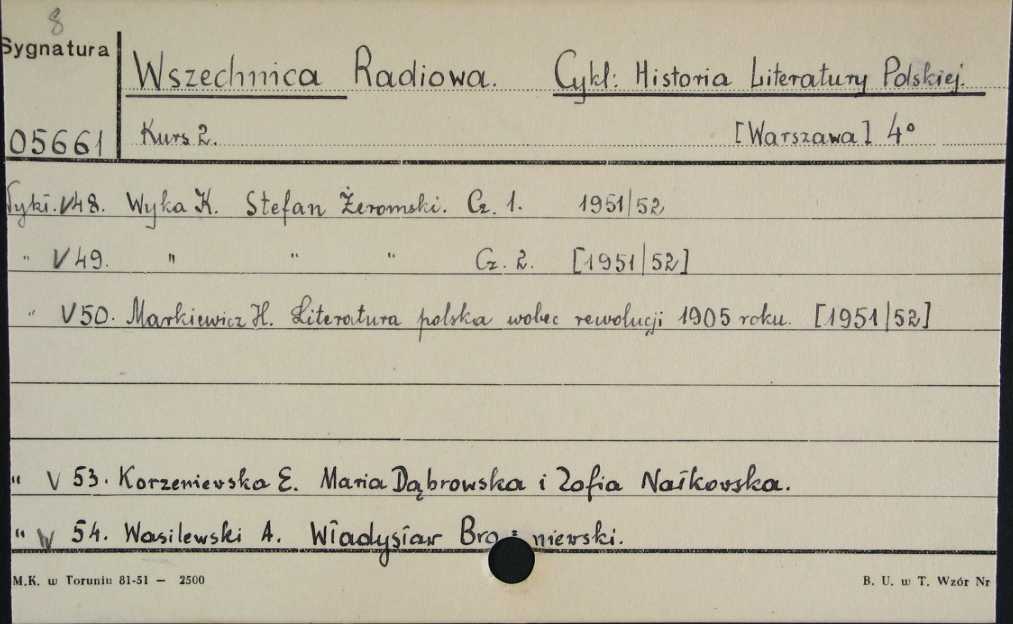 8
Sygnatura
Wszechnica Radiowa. Cykl: Historia Literatury Polskiej.
05661 Kurs 2. [Warszawa] 4°
Wykł. V48. Wyka K. Stefan Żeromski. Cz. 1. 1951/52
" V 49. " " " Cz. 2. [1951/52]
" V50. Markiewicz H. Literatura polska wobec rewolucji 1905 roku. [1951/52]
" V 53. Korzeniewska E. Maria Dąbrowska i Zofia Nałkowska.
" V 54. Wasilewski A. Władysław Bro niewski.
M.K. w Toruniu 81-51 — 2500
B. U. w T. Wzór Nr